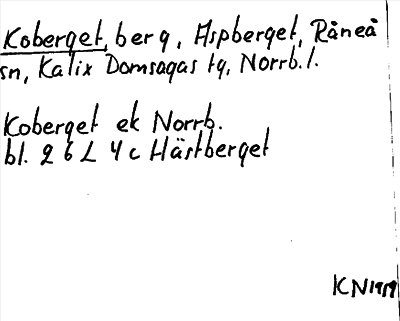 Koberget, berg, Aspberget, Råneå
sn, Kalix Domsagas tg, Norrb.l.
Koberget ek Norrb.
bl. 26 L 4c Hästberget
KN1919